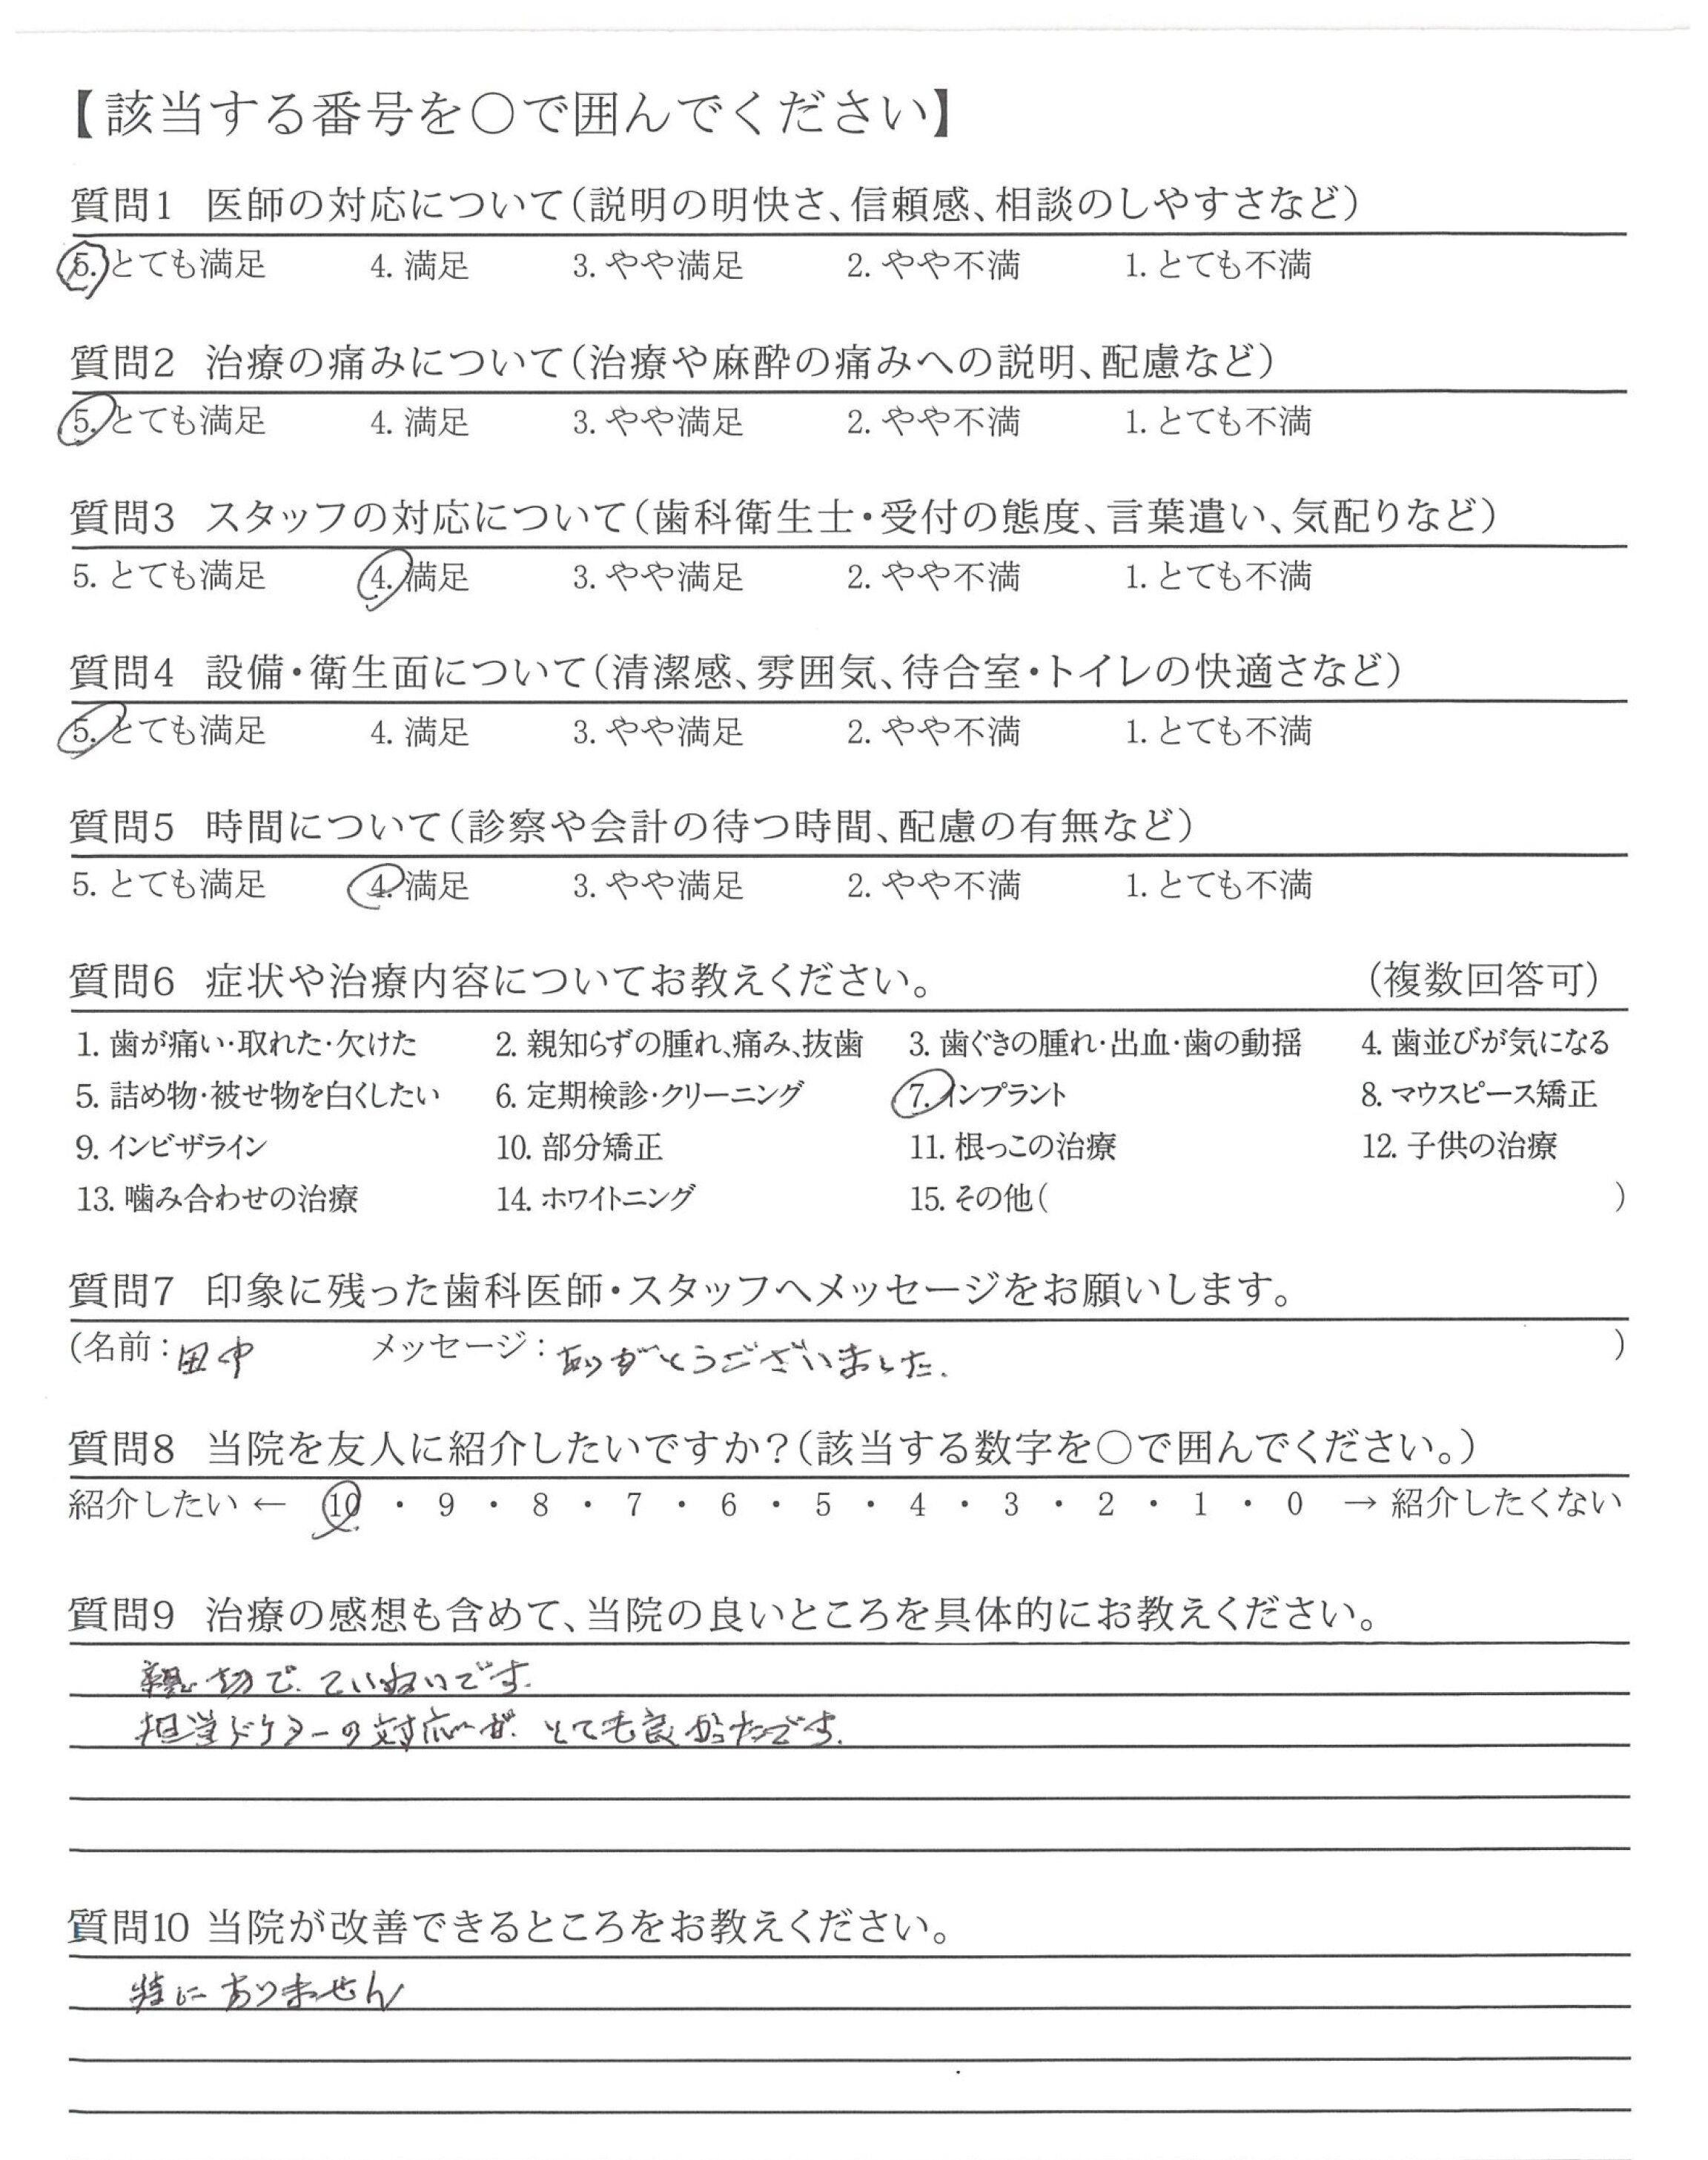 【該当する番号を○で囲んでください】
質問1 医師の対応について(説明の明快さ、信頼感、相談のしやすさなど)
5. とても満足 4. 満足 3. やや満足 2. やや不満 1. とても不満
質問2 治療の痛みについて(治療や麻酔の痛みへの説明、配慮など)
5. とても満足 4. 満足 3. やや満足 2. やや不満 1. とても不満
質問3 スタッフの対応について(歯科衛生士・受付の態度、言葉遣い、気配りなど)
5. とても満足 4. 満足 3. やや満足 2. やや不満 1. とても不満
質問4 設備・衛生面について(清潔感、雰囲気、待合室・トイレの快適さなど)
5. とても満足 4. 満足 3. やや満足 2. やや不満 1. とても不満
質問5 時間について(診察や会計の待つ時間、配慮の有無など)
5. とても満足 4. 満足 3. やや満足 2. やや不満 1. とても不満
質問6 症状や治療内容についてお教えください。 (複数回答可)
1. 歯が痛い・取れた・欠けた 2. 親知らずの腫れ、痛み、抜歯 3. 歯ぐきの腫れ・出血・歯の動揺 4. 歯並びが気になる
5. 詰め物・被せ物を白くしたい 6. 定期検診・クリーニング 7. インプラント 8. マウスピース矯正
9. インビザライン 10. 部分矯正 11. 根っこの治療 12. 子供の治療
13. 噛み合わせの治療 14. ホワイトニング 15. その他( )
質問7 印象に残った歯科医師・スタッフへメッセージをお願いします。
(名前: 田中 メッセージ: ありがとうございました. )
質問8 当院を友人に紹介したいですか?(該当する数字を○で囲んでください。)
紹介したい ← 10 ・ 9 ・ 8 ・ 7 ・ 6 ・ 5 ・ 4 ・ 3 ・ 2 ・ 1 ・ 0 → 紹介したくない
質問9 治療の感想も含めて、当院の良いところを具体的にお教えください。
親切で、ていねいです.
担当ドクターの対応が、とても良かったです.
質問10 当院が改善できるところをお教えください。
特にありません